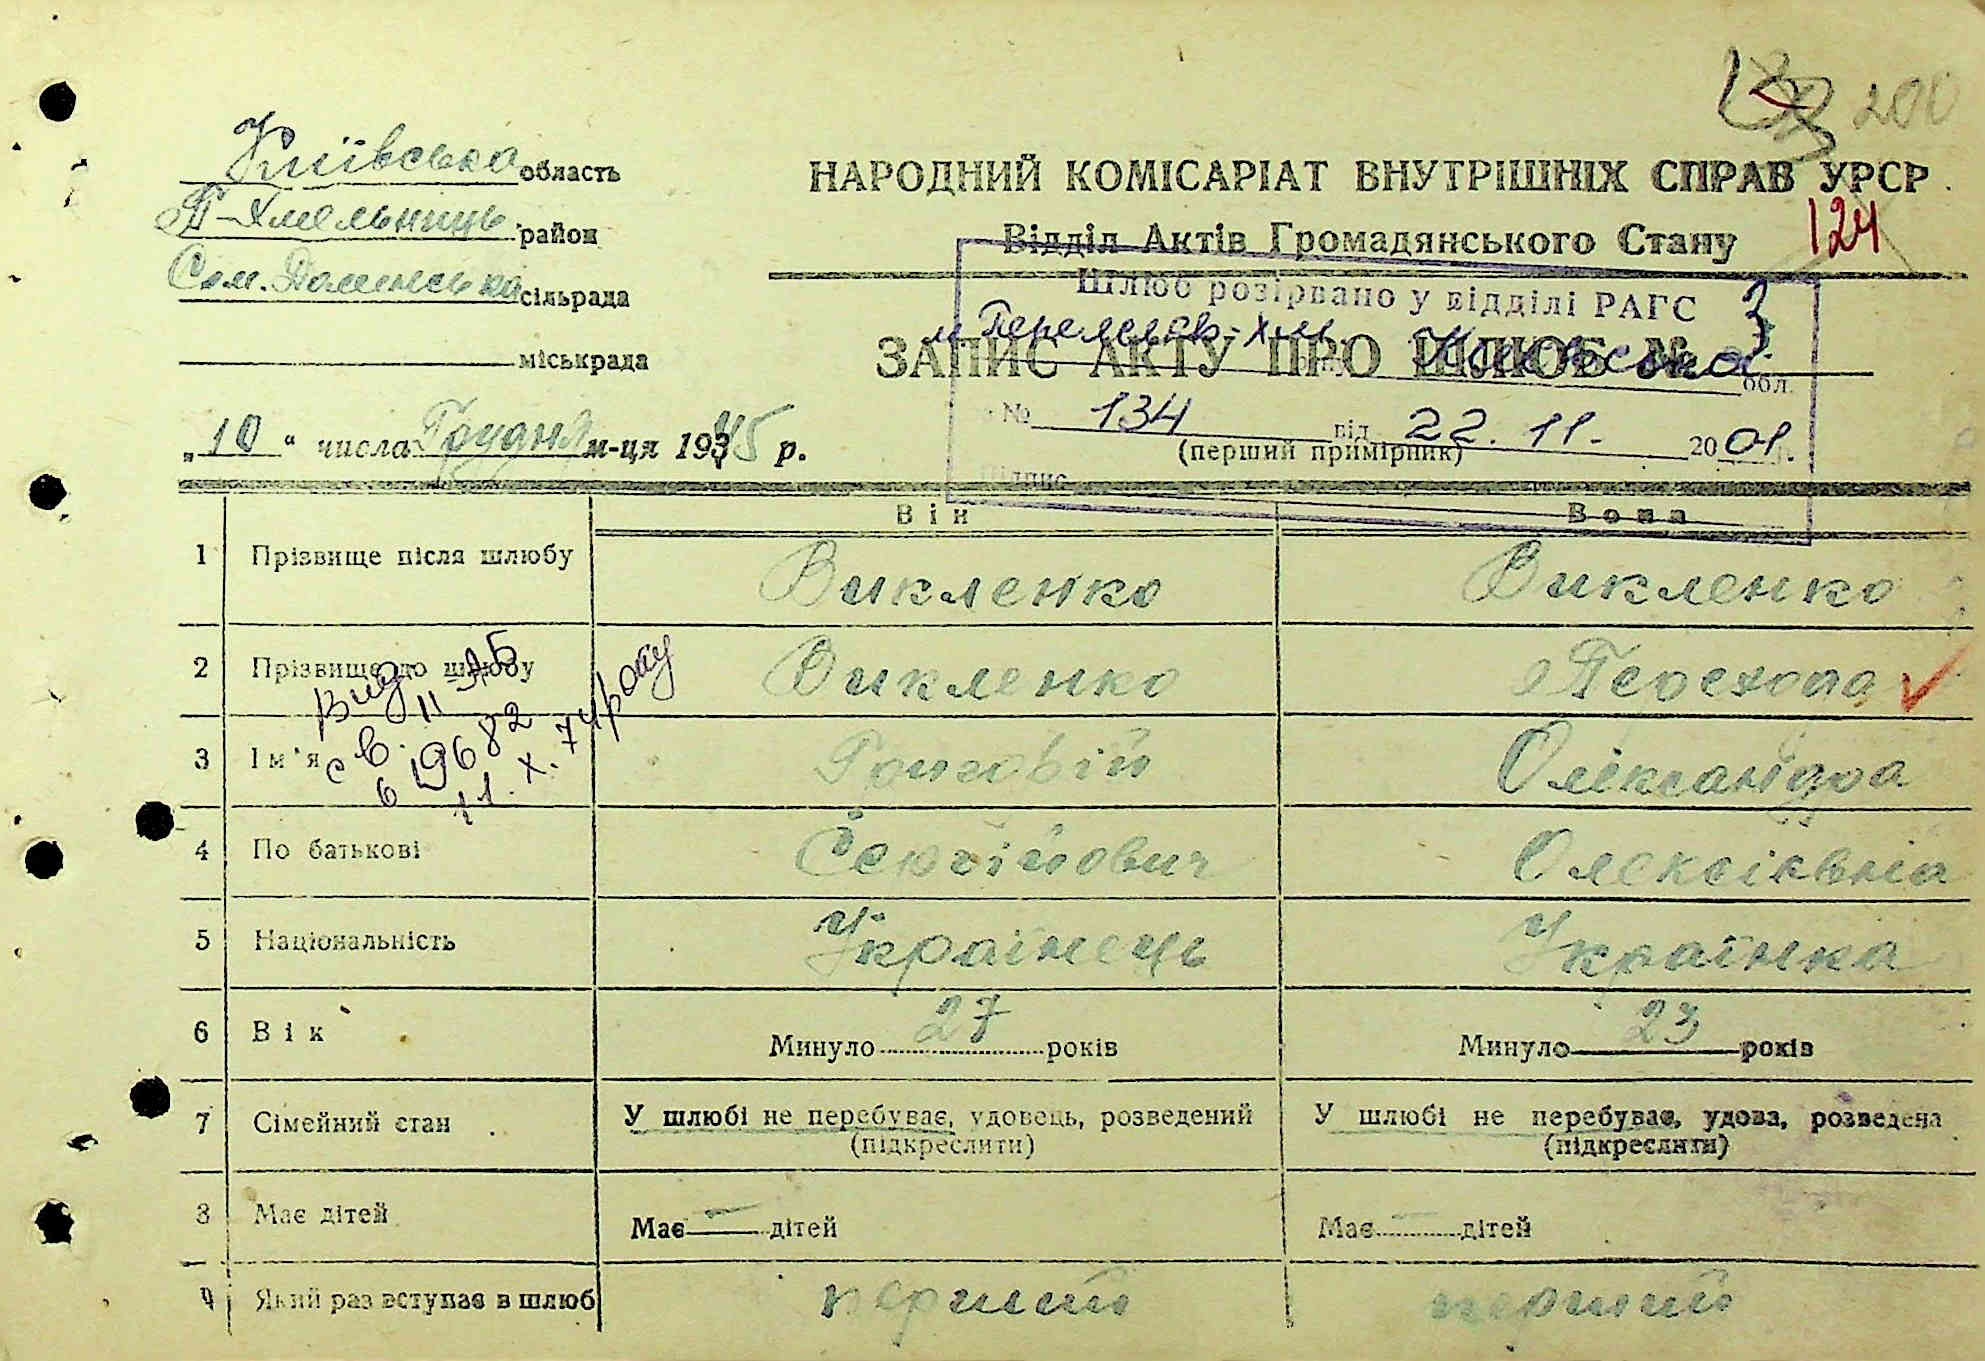 200
Київська область
П-Хмельниць район
НАРОДНИЙ КОМІСАРІАТ ВНУТРІШНІХ СПРАВ УРСР
124
Відділ Актів Громадянського Стану
сільрада
Шлюб розірвано у відділі РАГС
міськрада
ЗАПИС АКТУ ПРО ШЛЮБ № 3
обл.
№ 134 від 22. 11. 2001 р.
„10“ числа Грудня м-ця 1945 р.
(перший примірник)
Підпис
Він Вона
1 Прізвище після шлюбу Викленко Викленко
2 Прізвище до шлюбу Викленко
Вид. св. II-АБ
619682
11. X. 74 року
3 Ім'я Григорій Олександра
4 По батькові Сергійович Олексіївна
5 Національність Українець Українка
6 Вік Минуло 27 років Минуло 23 років
7 Сімейний стан У шлюбі не перебуває, удовець, розведений У шлюбі не перебуває, удова, розведена
(підкреслити) (підкреслити)
8 Має дітей Має — дітей Має — дітей
9 Який раз вступає в шлюб перший перший